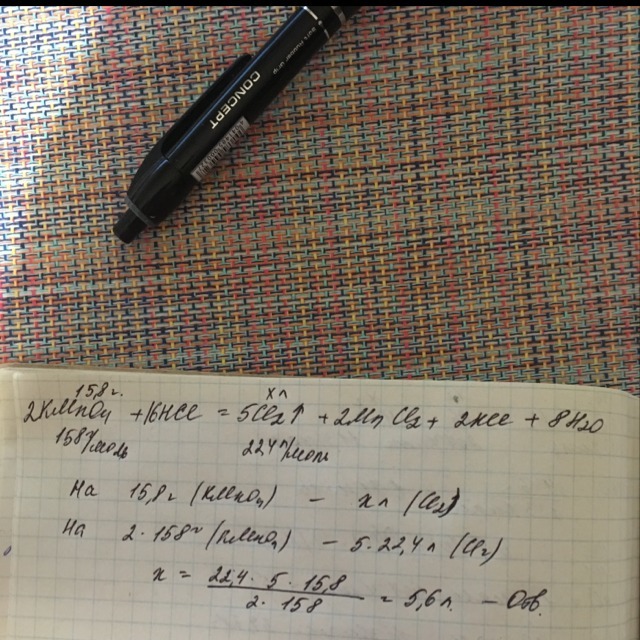 CONCEPT
15,8 г.
x л
2KMnO4 + 16HCl = 5Cl2↑ + 2MnCl2 + 2KCl + 8H2O
158 г/моль 22,4 л/моль
На 15,8 г (KMnO4) - x л (Cl2)
На 2·158 г (KMnO4) - 5·22,4 л (Cl2)
x = 22,4·5·15,8 / 2·158 = 5,6 л. - Отв.